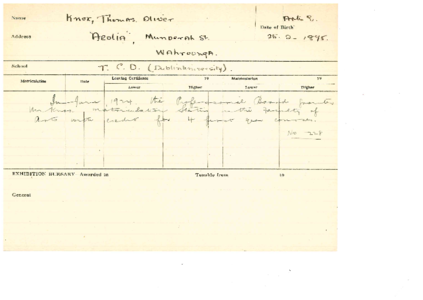 Name Knox, Thomas Oliver Arts I.
Date of Birth
Address "Aeolia", Munderah St. 26. 2. 1895.
Wahroonga.
School T. C. D. (Dublin University).
Matriculation Date Leaving Certificate 19 Matriculation 19
Lower Higher Lower Higher
1924 the Professorial Board granted
Mr Knox matriculation status in the Faculty of
Arts with credit for 4 first year courses.
EXHIBITION BURSARY Awarded in Tenable from 19
General